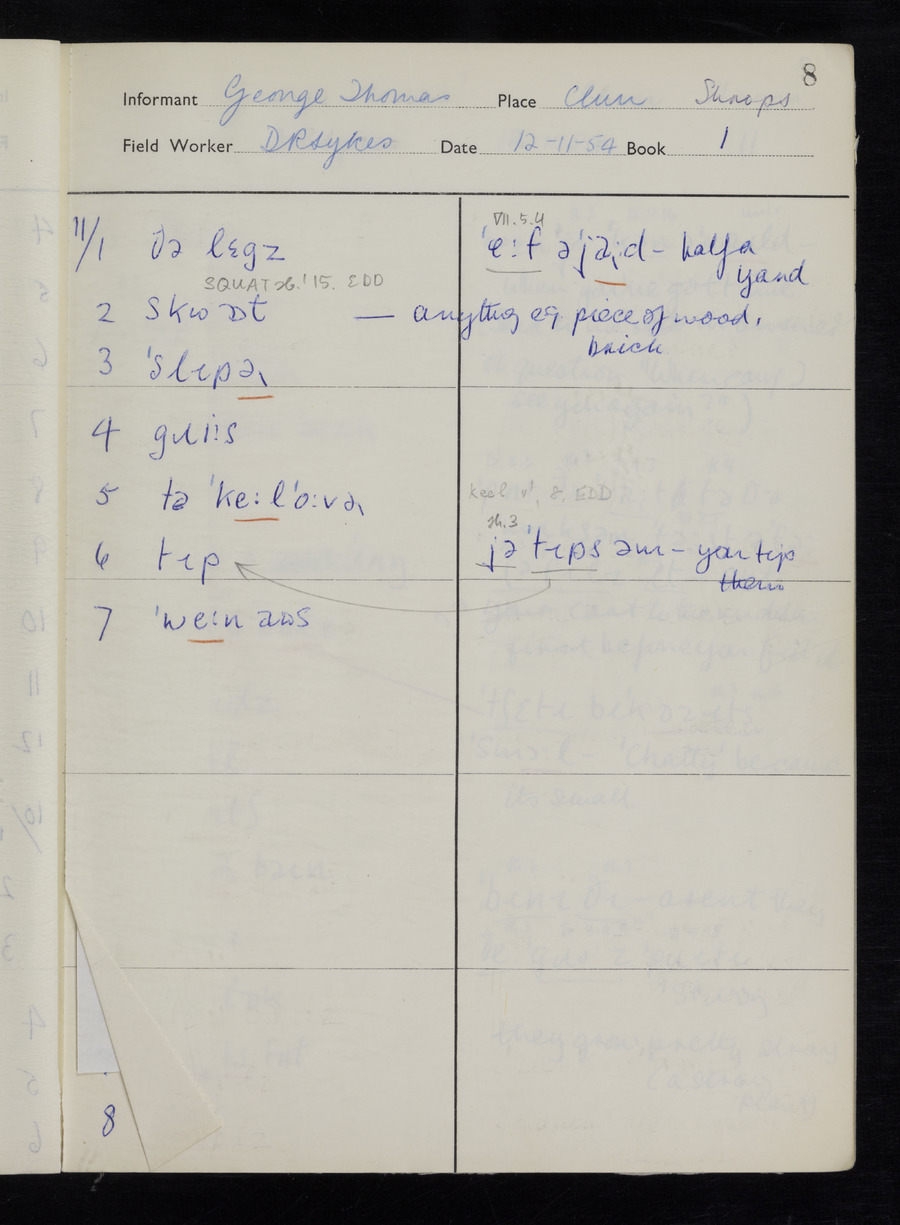 8
Informant George Thomas Place Clun Shrops
Field Worker D R Sykes Date 12-11-54 Book 1
VII.5.4
11/1 ðə lɛgz 'ɐ:f ə'jəɻ:d - half a
yard
SQUAT sb.' 15. EDD
2 skwɒt — anything eg piece of wood,
brick
3 'slɪpəɻ
4 gɹi:s
keel v', 8, EDD
5 tə 'ke:l'o:vəɻ
sb.3
6 tɪp jə 'tɪps əm - you tip
them
7 'we:n aʊs
8